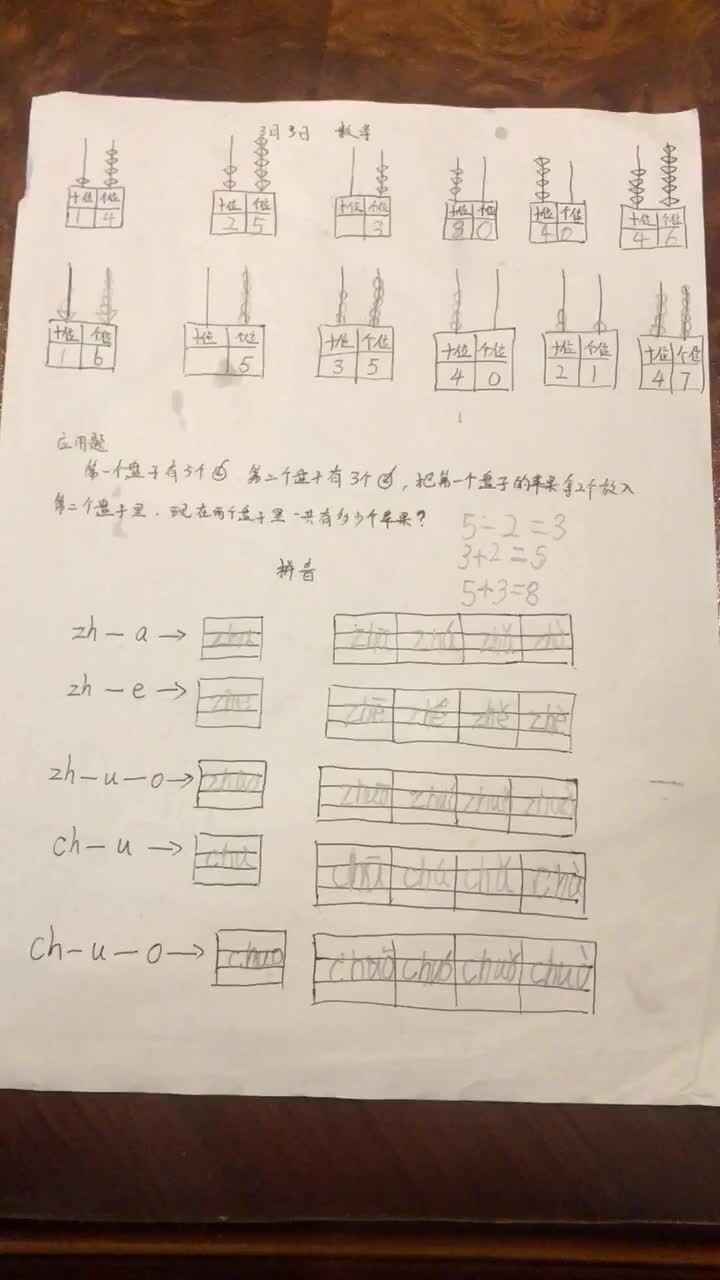 3月3日 数学
十位 个位 十位 个位 十位 个位 十位 个位 十位 个位 十位 个位
1 4 2 5 3 3 0 4 0 4 6
十位 个位 十位 个位 十位 个位 十位 个位 十位 个位 十位 个位
1 6 5 3 5 4 0 2 1 4 7
应用题
第一个盘子有5个 第二个盘子有3个 , 把第一个盘子的苹果拿2个放入
第二个盘子里. 现在两个盘子里一共有多少个苹果?
5-2=3
3+2=5
5+3=8
拼音
zh-a→ zha zhā zhá zhǎ zhà
zh-e→ zhe zhē zhé zhě zhè
zh-u-o→ zhuo zhuō zhuó zhuǒ zhuò
ch-u→ chu chū chú chǔ chù
ch-u-o→ chuo chuō chuó chuǒ chuò